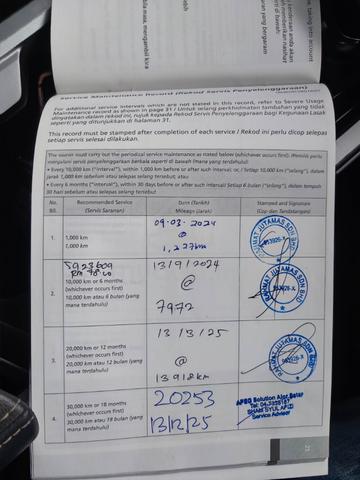 Service Maintenance Record (Rekod Servis Penyelenggaraan)
For additional service intervals which are not stated in this record, refer to Severe Usage
Maintenance record as shown in page 31 / Untuk selang perkhidmatan tambahan yang tidak
dinyatakan dalam rekod ini, rujuk kepada Rekod Servis Penyelenggaraan bagi Kegunaan Lasak
seperti yang ditunjukkan di halaman 31.
This record must be stamped after completion of each service / Rekod ini perlu dicop selepas
setiap servis selesai dilakukan.
The owner must carry out the periodical service maintenance as stated below (whichever occurs first). Pemilik perlu
menjalani servis penyelenggaraan berkala seperti di bawah (mana yang terdahulu):
• Every 10,000 km ("interval"), within 1,000 km before or after such interval; or / Setiap 10,000 km ("selang"), dalam
jarak 1,000 km sebelum atau selepas selang tersebut; atau
• Every 6 months ("interval"), within 30 days before or after such interval/ Setiap 6 bulan ("selang"), dalam tempoh
30 hari sebelum atau selepas selang tersebut
No.
Bil.
Recommended Service
(Servis Saranan)
Date (Tarikh)
Mileage (Jarak)
Stamped and Signature
(Cop dan Tandatangan)
1.
1,000 km
1,000 km
09.03.2024
@
1,227km
2.
10,000 km or 6 months
(whichever occurs first)
10,000 km atau 6 bulan (yang
mana terdahulu)
13/9/2024
@
7972
3.
20,000 km or 12 months
(whichever occurs first)
20,000 km atau 12 bulan (yang
mana terdahulu)
13/3/25
@
13918km
4.
30,000 km or 18 months
(whichever occurs first)
30,000 km atau 18 bulan (yang
mana terdahulu)
20253
13/12/25
Solution Alor Setar
Service Advisor
21